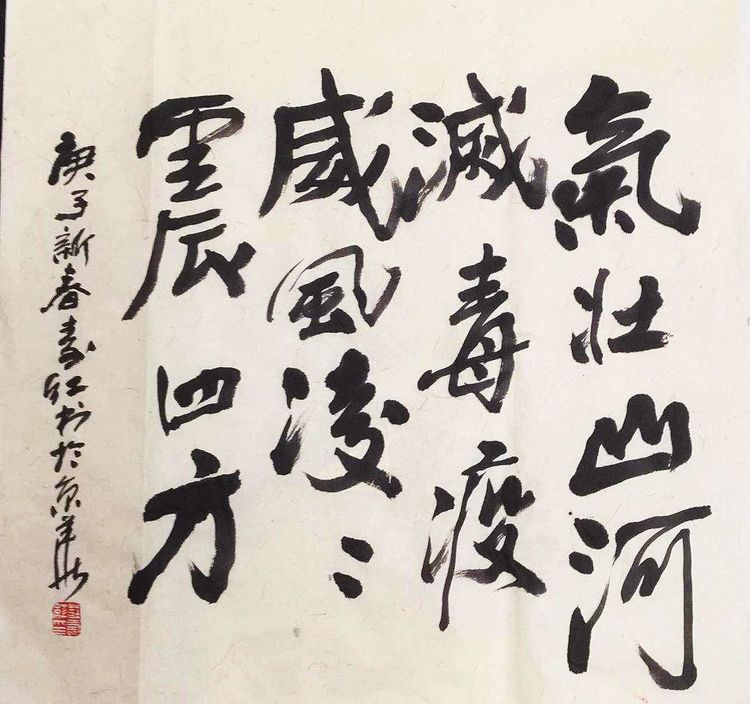 氣壯山河
滅毒疫
威風凌〻
震四方
庚子新春壽紅书於京華